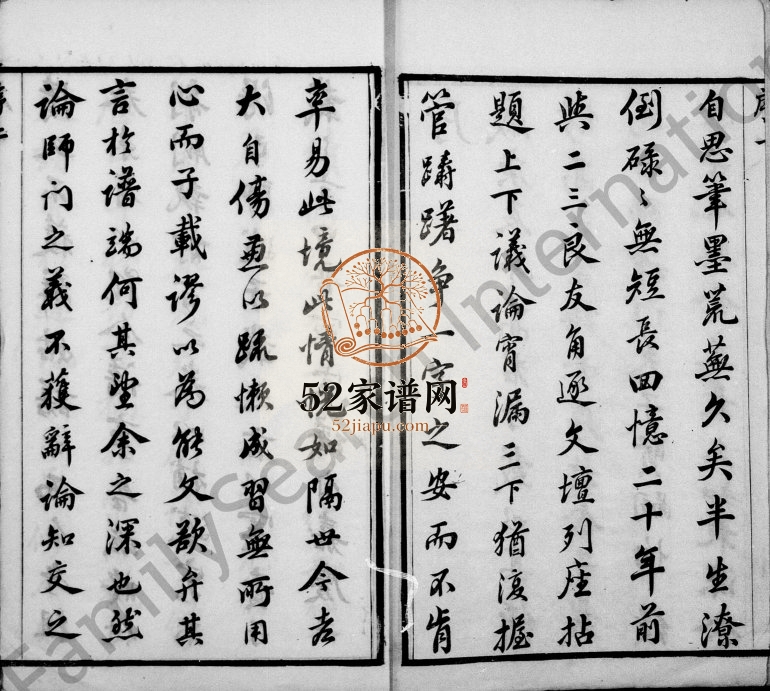 序一
自思筆墨荒蕪久矣半生潦
倒碌〻無短長回憶二十年前
與二三良友角逐文壇列座拈
題上下議論宵漏三下猶復握
管躊躇爭一字之安而不肯
率易此境此情 如隔世今老
大自傷更以疏懶成習無所用
心而子載謬以為能文欲弁其
言於譜端何其望余之深也然
論師門之義不獲辭論知交之
52家谱网
52jiapu.com
FamilySearch International